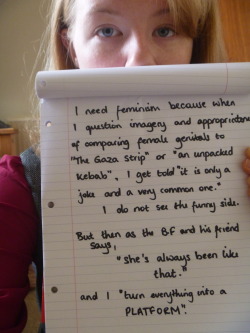 I need feminism because when
I question imagery and appropriateness
of comparing female genitals to
"The Gaza Strip" or "an unpacked
Kebab", I get told "it is only a
joke and a very common one."
I do not see the funny side.
But then as the BF and his friend
says,
"she's always been like
that."
and I "turn everything into a
PLATFORM".